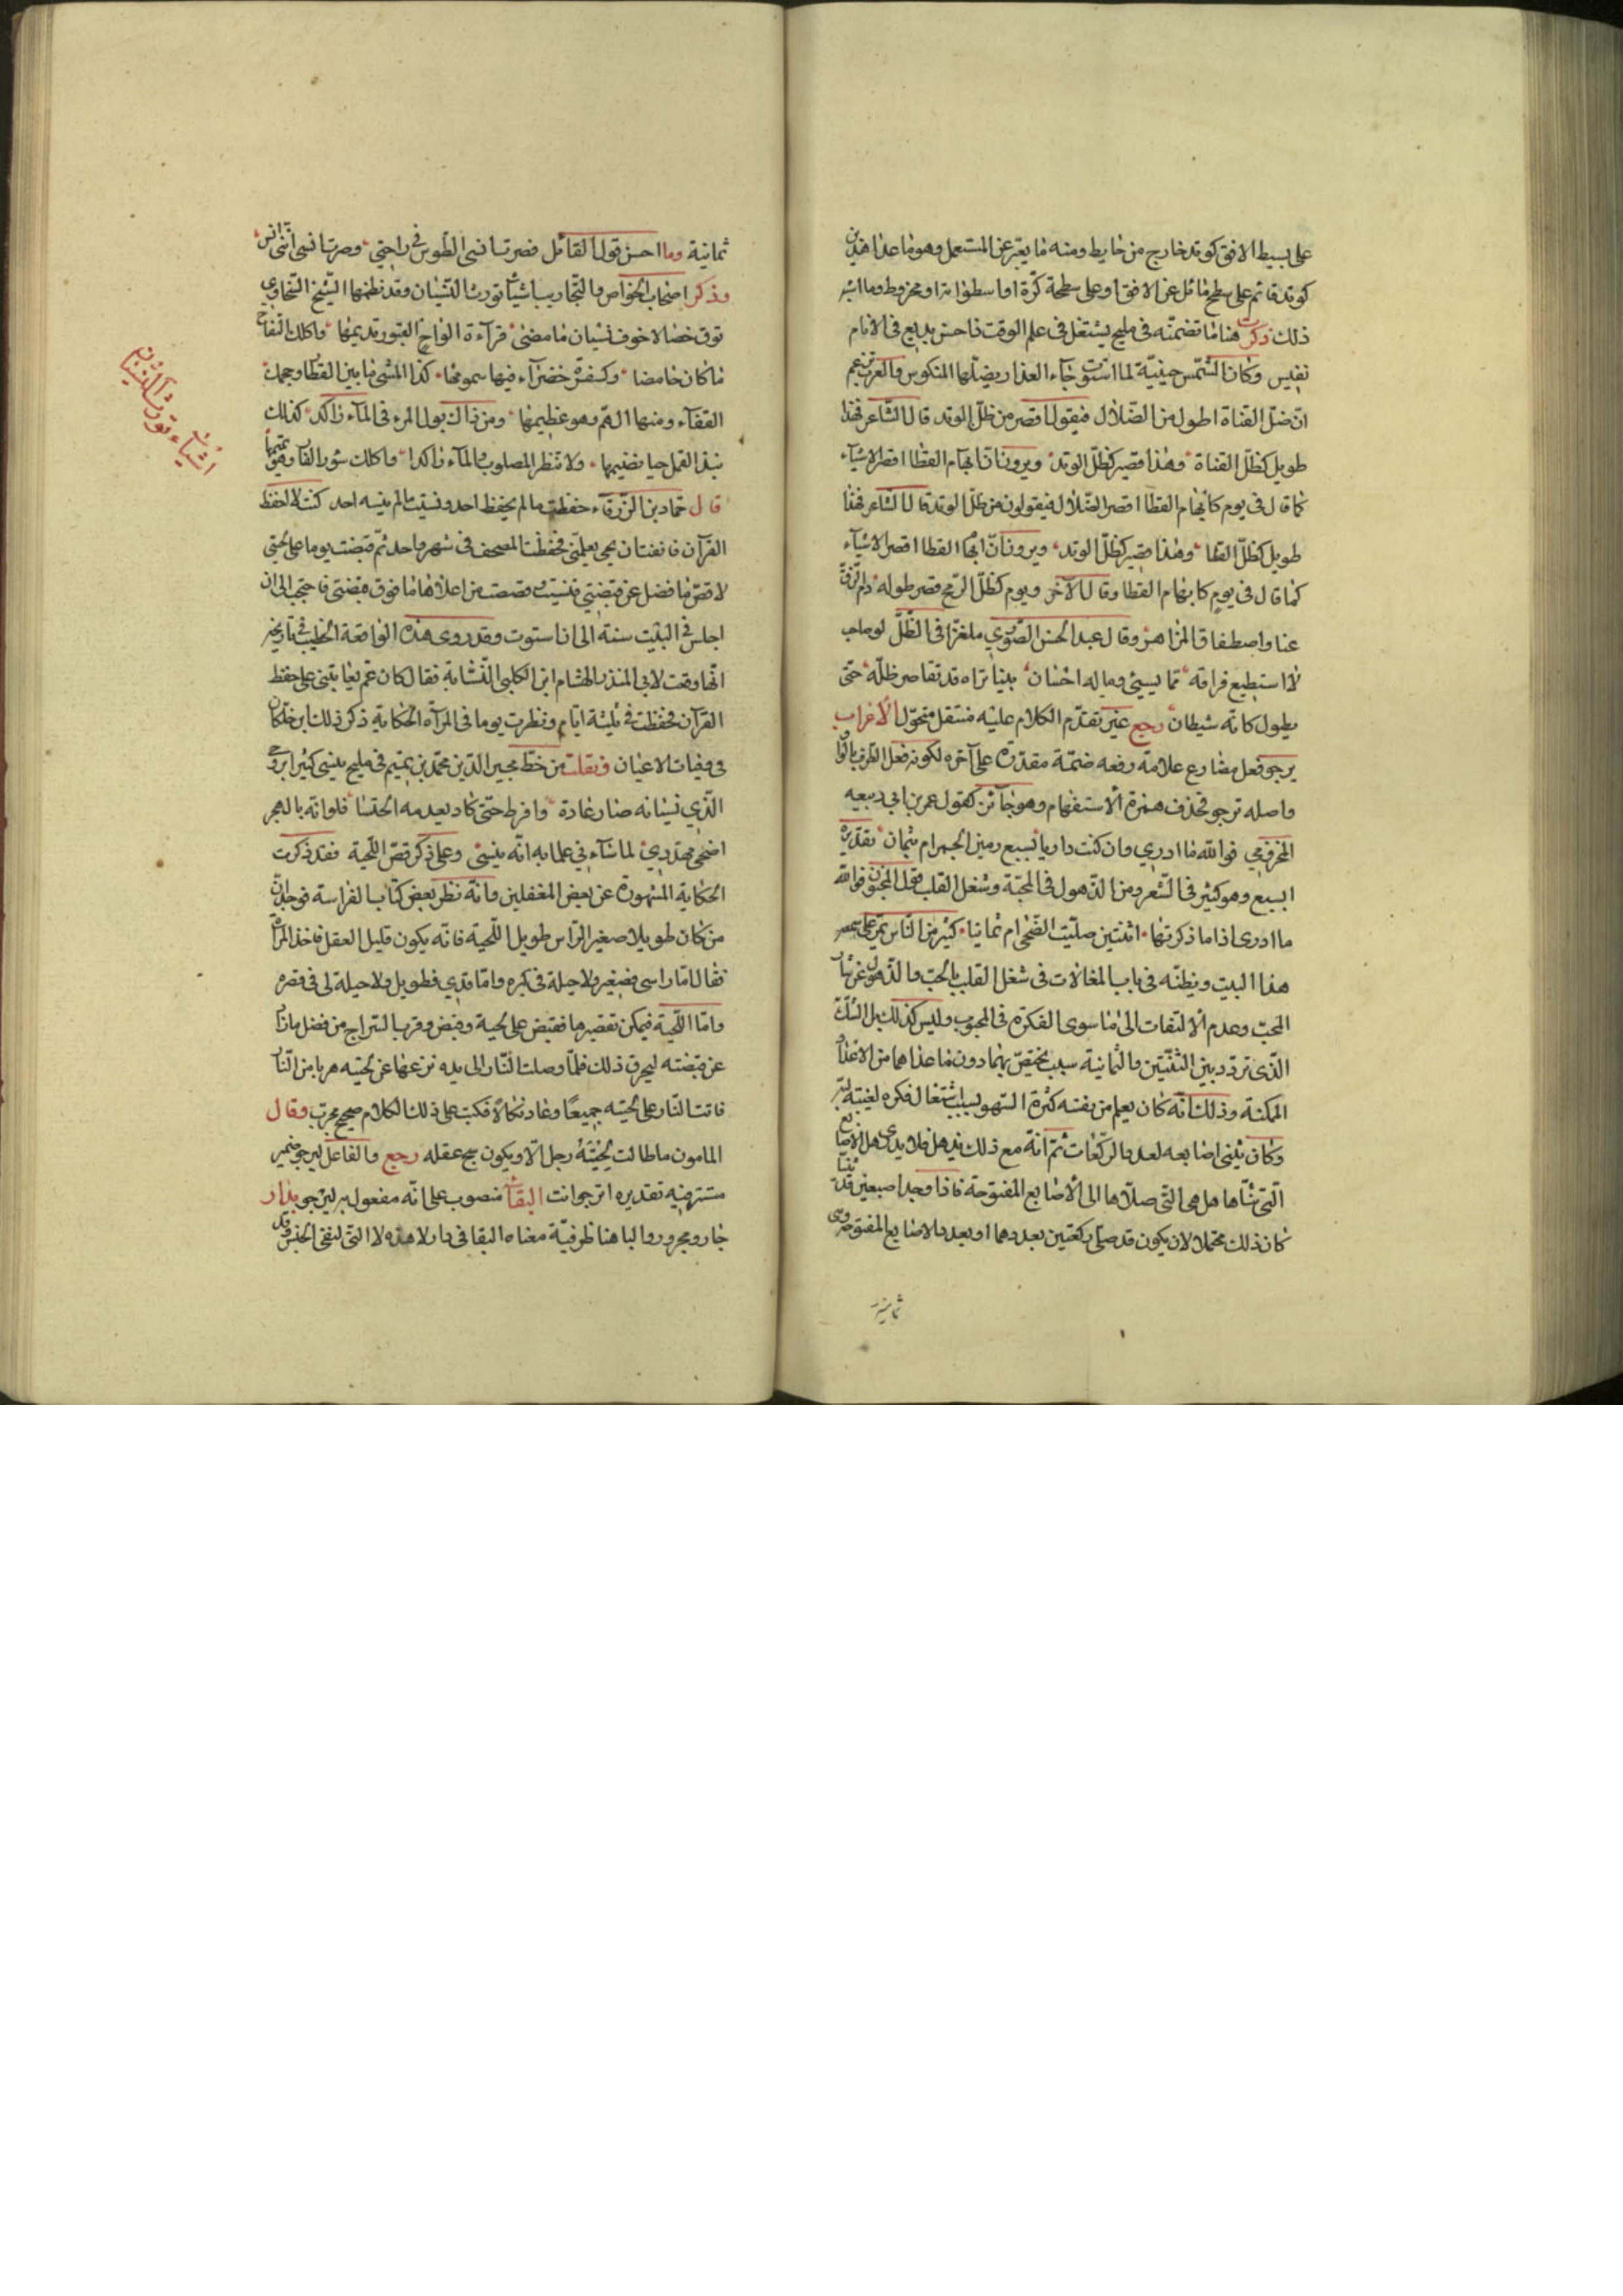 على بسيط الافق كوتد خارج من حايط ومنه ما يعبر عن المستعمل وهو ما عدا هذين
كوتد قائم على سطح مائل عن الافق او على سطحة كرة او اسطوانة او مخروط وما اشبه
ذلك ذكرت هنا ما تضمنته في مليح يشتغل في علم الوقت فاحسن بديع في الانام
نفيس وكان الشمس حينية لما استوت جاء العذار بضلها المنكوس والعرب تزعم
ان ضل القناة اطول من الضلال فيقول اقصر من ظل الوتد قال الشاعر فهذا
طويل كظل القناة وهذا قصير كظل الوتد ويرون ان ابهام القطا اقصر الاشياء
كما قال في يوم كابهام القطا اقصر الضلال فيقولون من ظل الوتد قال الشاعر فهذا
طويل كظل القنا وهذا قصير كظل الوتد ويرون ان ابها القطا اقصر الاشياء
كما قال في يوم كابهام القطا وقال الاخر ويوم كظل الرمح قصر طوله دم الزق
عنا واصطفاق المزاهر وقال عبد المحسن الصوري ملغزا في الظل لو صاحب
لا استطيع فراقه مما يسيئ وماله احسان بينا تراه قد تقاصر ظله حتى
يطول كانه شيطان رجع عين تقدم الكلام عليه فنتقل متحول الاعراب
يرجو فعل مضارع علامة رفعه ضمة مقدرة على آخره لكونه فعل الطرف بالواو
واصله ترجو فحذف همزة الاستفهام وهو جائز كقول عمر بن ابي ربيعه
المخزومي فوالله ما ادري وان كنت داريا بسبع رمين الجمر ام بثمان تقديره
ابسبع وهو كثير في الشعر ومن الذهول في المحبة وشغل القلب قول المجنون فوالله
ما ادرى اذا ما ذكرتها اثنتين صليت الضحى ام ثمانيا كثير من الناس يمر على سمعه
هذا البيت ويظنه في باب المغالات في شغل القلب بالحب والذهول عن شان
المحب وعدم الالتفات الى ما سوى الفكرة في المحبوب وليس كذلك بل الشك
الذى تردد بين الثنتين والثمانية سبب يختص بهما دون ما عداهما من الاعداد
الممكنة وذلك انه كان يعلم من نفسه كثرة السهو لسبب اشتغال فكره لغيبته
وكان يثنى اصابعه لعد الركعات ثم انه مع ذلك يذهل فلا يدرى هل الاصابع
التي ثناها هل هي التي صلاها الى الاصابع المفتوحة فاذا وجد اصبعين قد ثنيا
كان ذلك محتملا لان يكون قد صلى ركعتين بعددهما او بعدد الاصابع المفتوحة وهى
ثمانية
ثمانية وما احسن قول القائل فصرت انسى الطوس في راحتي وصرت انسى انني انس
وذكر اصحاب الخواص والتجاريب اشيآ تورث النسيان وقد نظمها الشيخ السخاوي
توق خصالا خوف نسيان ما مضى قرآءة الواح القبور تديمها واكلك التفاح
ما كان حامضا وكسفرة خضرآء فيها سمومها كذا المشى ما بين القطار وحجمك
القفآء ومنها الهم وهو عظيمها ومن ذاك بول المرء فى المآء راكد كذلك
نبذ القمل حيا فضيمها ولا تنظر المصلوب والمآء راكدا واكلك سؤر الفار وهو تميمها
قال حماد بن الزرقاء حفظت ما لم يحفظ احد ونسيت ما لم ينسه احد كنت لا احفظ
القرآن فانفت ان يجي يعلمني فحفظت المصحف في شهر واحد ثم قبضت يوما على لحيتي
لاقص ما فضل عن قبضتي فنسيت وقصصت من اعلاها ما فوق قبضتي فاحتجت الى ان
اجلس في البيت سنة الى ان استوت وقد روى هذه الواقعة الخطيب في تاريخه
انها وقعت لابي المنذر الهشام ابن الكلبي النسّابة فقال كان عم يعاتبني على حفظ
القرآن فحفظت في ثلثة ايام ونظرت يوما فى المرآه الحكاية ذكر ذلك ابن خلكان
في وفيات الاعيان ونقلت من خط مجير الدين محمد بن تميم في مليح ينسى كثيرا
الذي نسيانه صار عادة وافرط حتى كاد يعدمه الحسا فلو انه بالهجر
اضحى مهددي لما ساء ني علما به انه ينسى وعلى ذكر قص اللحية فقد ذكرت
الحكاية المشهورة عن بعض المغفلين وانه نظر بعض كتاب الفراسة فوجد ان
من كان طويلا صغير الراس طويل اللحية فانه يكون قليل العقل فاخذ المرآة
فقال اما راسى فصغير ولا حيلة في كبره واما قدي فطويل ولا حيلة لى في قصره
واما اللحية فيمكن تقصيرها فقبض على لحية وقبض وقرب السراج من فضل ما زاد
عن قبضته ليحرق ذلك فلما وصلت النار الى يده نزعها عن لحيته هربا من النار
فاتت النار على لحيته جميعًا وعاد نكالا فكتب على ذلك الكلام صحيح مجرب وقال
المامون ما طالت لحية رجل الا ويكون سج عقله رجع والفاعل ليرجو ضمير
مستتر فيه تقديره اترجو انت البقاء منصوب على انه مفعول به ليرجو بدار
جار ومجرور والبا هنا ظرفية معناه البقا في دار لا هذه لا التى لنفى الجنس وقد
اشياء تورث النسيان